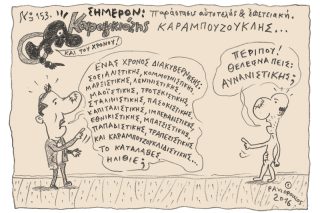 Νο 153.
ΣΗΜΕΡΟΝ: Παράστασις αυτοτελής & εφετειακή.
Καραγκιόζης
ΚΑΡΑΜΠΟΥΖΟΥΚΛΗΣ...
ΚΑΙ ΤΟΥ ΧΡΟΝΟΥ!
ΕΝΑΣ ΧΡΟΝΟΣ ΔΙΑΚΥΒΕΡΝΗΣΗΣ:
ΣΟΣΙΑΛΙΣΤΙΚΗΣ, ΚΟΜΜΟΥΝΙΣΤΙΚΗΣ,
ΜΑΡΞΙΣΤΙΚΗΣ, ΛΕΝΙΝΙΣΤΙΚΗΣ,
ΜΑΟΥΣΤΙΚΗΣ, ΤΡΟΤΣΚΙΣΤΙΚΗΣ,
ΣΤΑΛΙΝΙΣΤΙΚΗΣ, ΠΑΣΟΚΙΣΤΙΚΗΣ,
ΚΑΠΙΤΑΛΙΣΤΙΚΗΣ, ΙΜΠΕΡΙΑΛΙΣΤΙΚΗΣ,
ΕΘΝΙΚΙΣΤΙΚΗΣ, ΜΠΑΤΣΙΣΤΙΚΗΣ,
ΠΑΠΑΔΙΣΤΙΚΗΣ, ΤΡΑΠΕΖΙΣΤΙΚΗΣ
ΚΑΙ ΚΑΡΑΜΠΟΥΖΟΥΚΛΙΔΙΣΤΙΚΗΣ...
ΤΟ ΚΑΤΑΛΑΒΕΣ
ΗΛΙΘΙΕ;
ΠΕΡΙΠΟΥ!
ΘΕΛΕΙΣ ΝΑ ΠΕΙΣ:
ΑΥΝΑΝΙΣΤΙΚΗΣ;
©
2016.